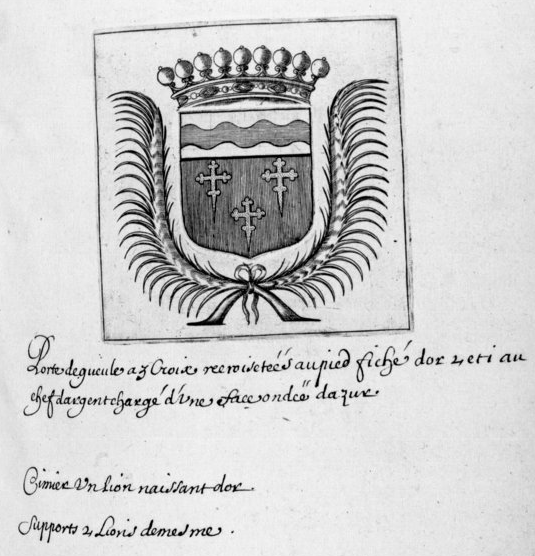 Porte de gueule a 3 Croix recroisetéés au pied fiché dor 2 et i au
chef dargent chargé d'Vne face ondeé dazur
Cimier Vn Lion naissant dor.
Supports 2 Lions de mesme.